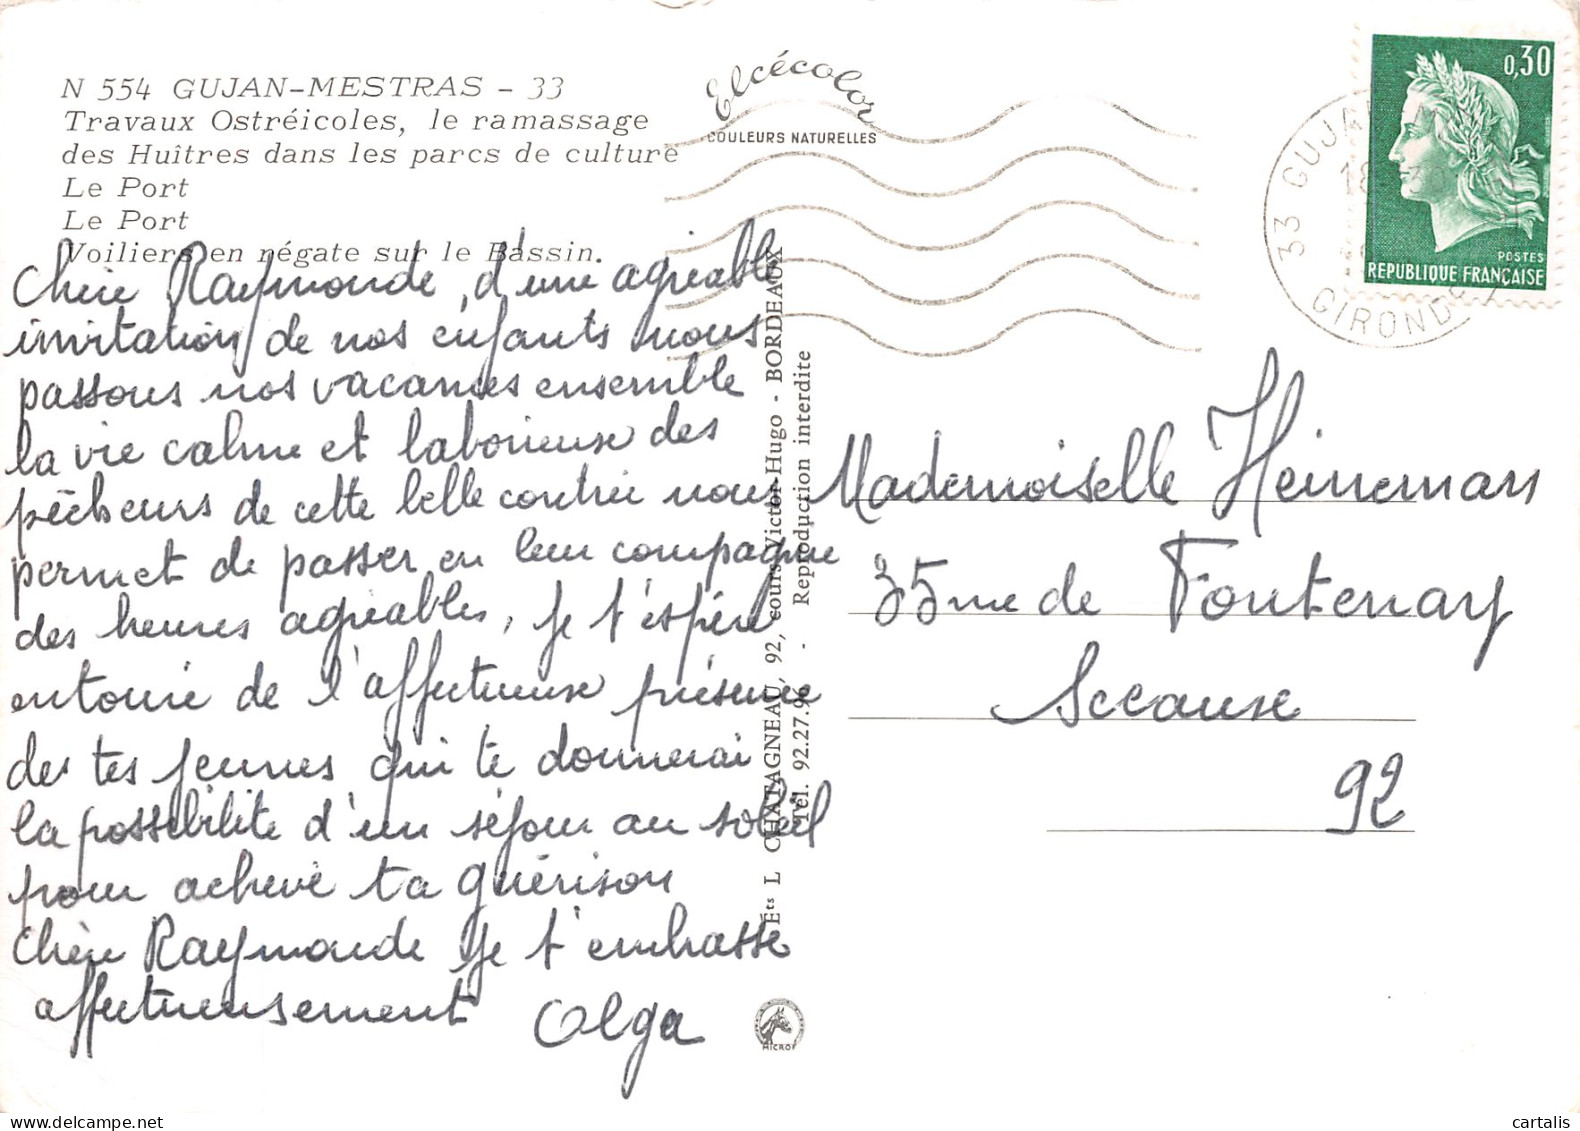 N 554 GUJAN-MESTRAS - 33
Travaux Ostréicoles, le ramassage
des Huîtres dans les parcs de culture
Le Port
Le Port
Voiliers en régate sur le Bassin.
Elcécolor
COULEURS NATURELLES
0,30
POSTES
REPUBLIQUE FRANÇAISE
33 GUJAN
18
GIRONDE
Chère Raymonde, d'une agréable
invitation de nos enfants nous
passons nos vacances ensemble
la vie calme et laborieuse des
pêcheurs de cette belle contrée nous
permet de passer en leur compagnie
des heures agréables, je t'espère
entouré de l'affectueuse présence
des tes jeunes qui te donnerai
la possibilité d'un séjour au soleil
pour achevé ta guérison
Chère Raymonde je t'embrasse
affectueusement Olga
Ets L CHATAGNEAU, 92, cours Victor-Hugo - BORDEAUX
Tél. 92.27.96 - Reproduction interdite
MICRO
Mademoiselle Heinemans
35 rue de Fontenay
Sceause
92
cartalis